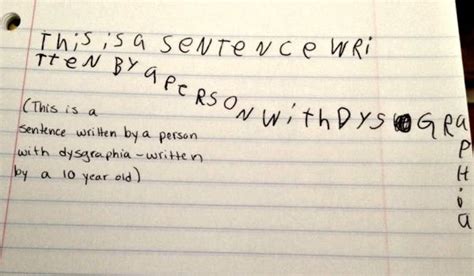 THiS iS a SeNTeNCe WRi
TTeN BY a PeRSON WiTH DYSGRaPHia
(This is a
sentence written by a person
with dysgraphia - written
by a 10 year old)